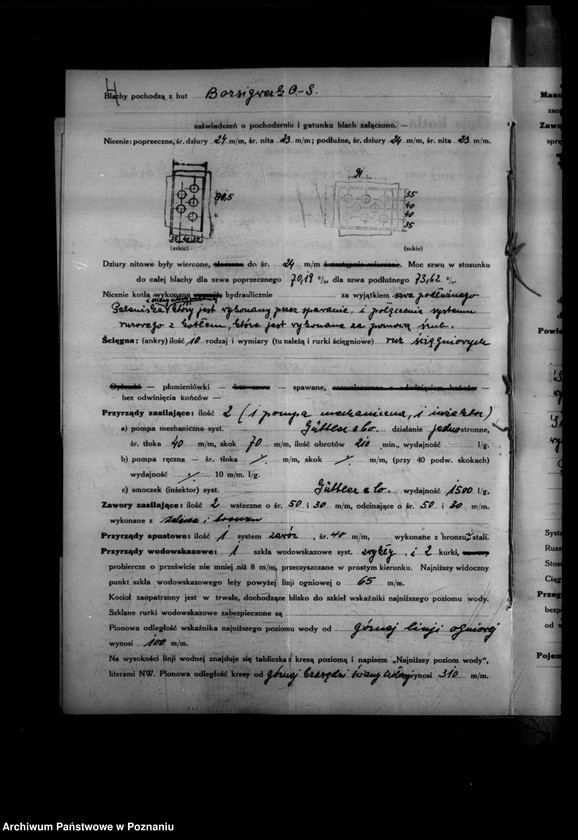 4
Blachy pochodzą z hut Borsigwerk O.-S.
zaświadczeń o pochodzeniu i gatunku blach załączono. —
Nicenie: poprzeczne, śr. dziury 24 m/m, śr. nita 23 m/m; podłużne, śr. dziury 24 m/m, śr. nita 23 m/m.
91
35
40
40
35
(szkic) (szkic)
Dziury nitowe były wiercone, do śr. 24 m/m Moc szwu w stosunku
do całej blachy dla szwa poprzecznego 70,19 % dla szwa podłużnego 73,62 %.
Nicenie kotła wykonano hydraulicznie za wyjątkiem szwa podłużnego
Paleniska, który jest wykonany przez spawanie, i połączenie systemu
rurowego z kotłem, które jest wykonane za pomocą śrub.
Ścięgna: (ankry) ilość 10 rodzaj i wymiary (tu należą i rurki ścięgniowe) rur ścięgniowych
— płomieniówki — — spawane, —
bez odwinięcia końców —
Przyrządy zasilające: ilość 2 (1 pompa mechaniczna, 1 inżektor)
a) pompa mechaniczna syst. Güttler & Co. działanie jednostronne,
śr. tłoka 40 m/m, skok 70 m/m, ilość obrotów 210 min., wydajność l/g.
b) pompa ręczna — śr. tłoka m/m, skok m/m, (przy 40 podw. skokach)
wydajność 10 m/m. l/g.
c) smoczek (inżektor) syst. Güttler & Co. wydajność 1500 l/g,
Zawory zasilające: ilość 2 wsteczne o śr. 50 i 30 m/m, odcinające o śr. 50 i 30 m/m.
wykonane z żelaza i bronzu
Przyrządy spustowe: ilość 1 system zawór, śr. 40 m/m, wykonane z bronzu stali.
Przyrządy wodowskazowe: 1 szkła wodowskazowe syst. zwykły, i 2 kurki,
probiercze o prześwicie nie mniej niż 8 m/m, przeczyszczane w prostym kierunku. Najniższy widoczny
punkt szkła wodowskazowego leży powyżej linji ogniowej o 65 m/m.
Kocioł zaopatrzony jest w trwale, dochodzące blisko do szkieł wskaźniki najniższego poziomu wody.
Szklane rurki wodowskazowe zabezpieczone są
Pionowa odległość wskaźnika najniższego poziomu wody od górnej linji ogniowej
wynosi 100 m/m.
Na wysokości linji wodnej znajduje się tabliczka z kresą poziomą i napisem „Najniższy poziom wody",
literami NW. Pionowa odległość kresy od górnej krawędzi ściany wynosi 310 m/m.
Archiwum Państwowe w Poznaniu